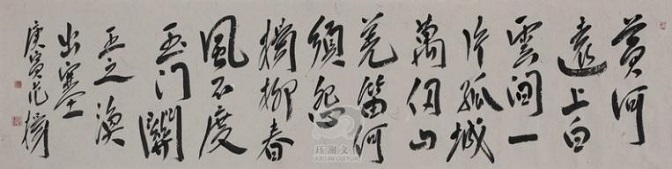 黃河
遠上白
雲間一
片孤城
萬仞山
羌笛何
須怨
楊柳春
風不度
玉門關
王之渙
出塞
庚寅范揚